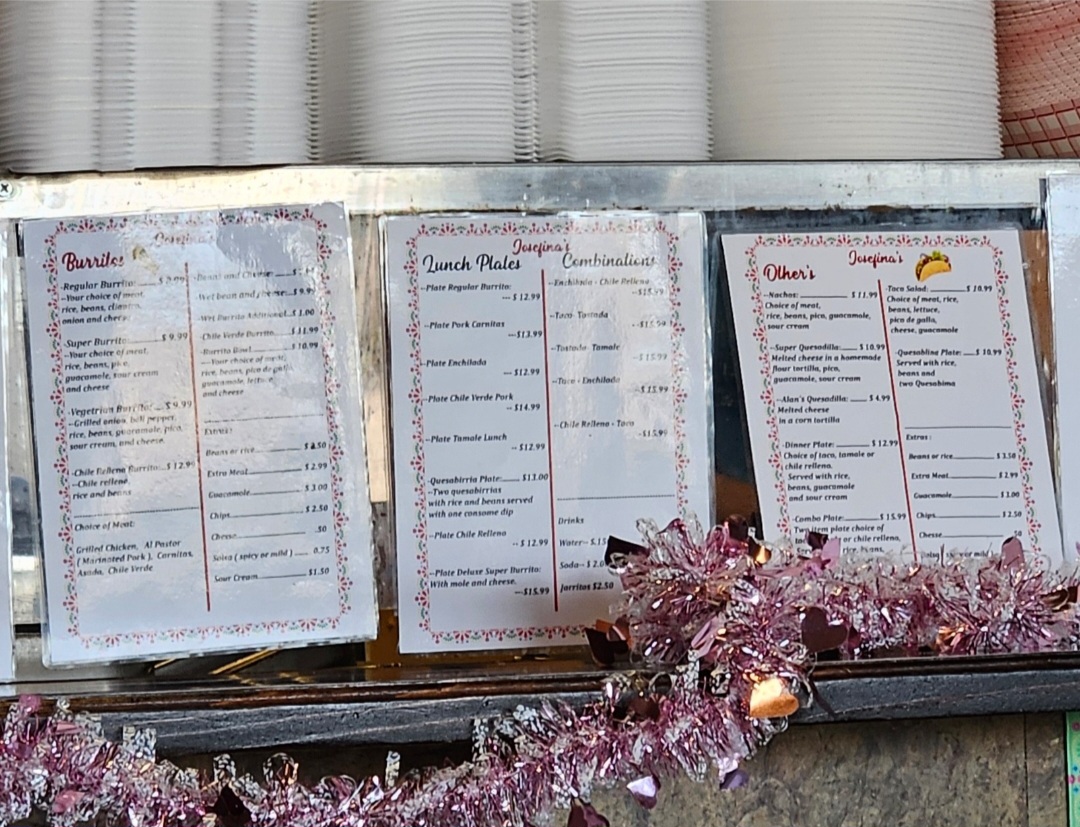 Josefina's
Burritos
-Regular Burrito:
--Your choice of meat,
rice, beans, cilantro,
onion and cheese
-Super Burrito: $ 9.99
--Your choice of meat,
rice, beans, pico,
guacamole, sour cream
and cheese
-Vegetrian Burrito: $ 9.99
--Grilled onion, bell pepper,
rice, beans, guacamole, pico,
sour cream, and cheese.
-Chile Relleno Burrito: $ 12.99
--Chile relleno,
rice and beans
Choice of Meat:
Grilled Chicken, Al Pastor
( Marinated Pork ), Carnitas,
Asada, Chile Verde
-Bean and Cheese:
-Wet bean and cheese: $9.99
-Wet Burrito Additional $ 1.00
-Chile Verde Burrito $ 11.99
-Burrito Bowl $ 10.99
--Your choice of meat,
rice, beans, pico de gallo
guacamole, lettuce,
and cheese
Extras:
Beans or rice $
Extra Meat $ 2.99
Guacamole $ 3.00
Chips $ 2.50
Cheese .50
Salsa ( spicy or mild ) 0.75
Sour Cream $1.50
Josefina's
Lunch Plates
--Plate Regular Burrito:
--- $ 12.99
--Plate Pork Carnitas
---$13.99
--Plate Enchilada
--- $12.99
--Plate Chile Verde Pork
--- $14.99
--Plate Tamale Lunch
-- $12.99
-Quesabirria Plate: $13.00
--Two quesabirrias
with rice and beans served
with one consome dip
--Plate Chile Relleno
-- $ 12.99
--Plate Deluxe Super Burrito:
With mole and cheese.
---$15.99
Combinations
--Enchilada - Chile Relleno
--$15.99
--Taco- Tostada
--$15.99
--Tostada- Tamale
--$15.99
--Taco - Enchilada
--$15.99
--Chile Relleno - Taco
--$15.99
Drinks
Water--
Soda--
Jarritos $2.50
Josefina's
Other's
--Nachos: $ 11.99
Choice of meat,
rice, beans, pico, guacamole,
sour cream
--Super Quesadilla: $ 10.99
Melted cheese in a homemade
flour tortilla, pico,
guacamole, sour cream
--Alan's Quesadilla: $ 4.99
Melted cheese
in a corn tortilla
--Dinner Plate: $ 12.99
Choice of taco, tamale or
chile relleno.
Served with rice,
beans, guacamole
and sour cream
--Combo Plate: $ 15.99
Two item plate choice of
or chile relleno,
rice, beans,
-Taco Salad: $ 10.99
Choice of meat, rice,
beans, lettuce,
pico de gallo,
cheese, guacamole
-Quesabline Plate: $ 10.99
Served with rice,
beans and
two Quesahima
Extras :
Beans or rice $ 3.50
Extra Meat $ 2.99
Guacamole $ 3.00
Chips $ 2.50
Cheese